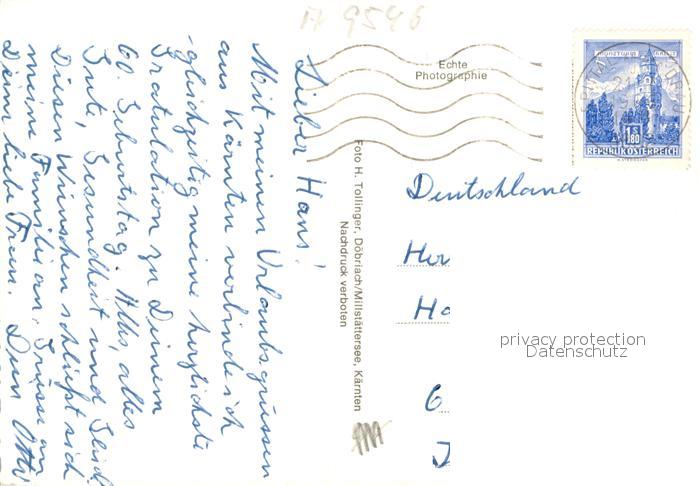 A 9546
Echte
Photographie
MÜNZTURM
1S80
REPUBLIK ÖSTERREICH
Foto H. Tollinger, Döbriach/Millstättersee, Kärnten
Nachdruck verboten
Lieber Hans!
Mit meinen Urlaubsgrüssen
aus Kärnten verbinde ich
gleichzeitig meine herzlichste
Gratulation zu Deinem
60. Geburtstag. Alles, alles
Gute, Gesundheit und
Diesen Wünschen schließt sich
meine Familie an. Grüsse an
Deine liebe Frau. Dein Otto
Deutschland
Her
Ha
6
privacy protection
Datenschutz